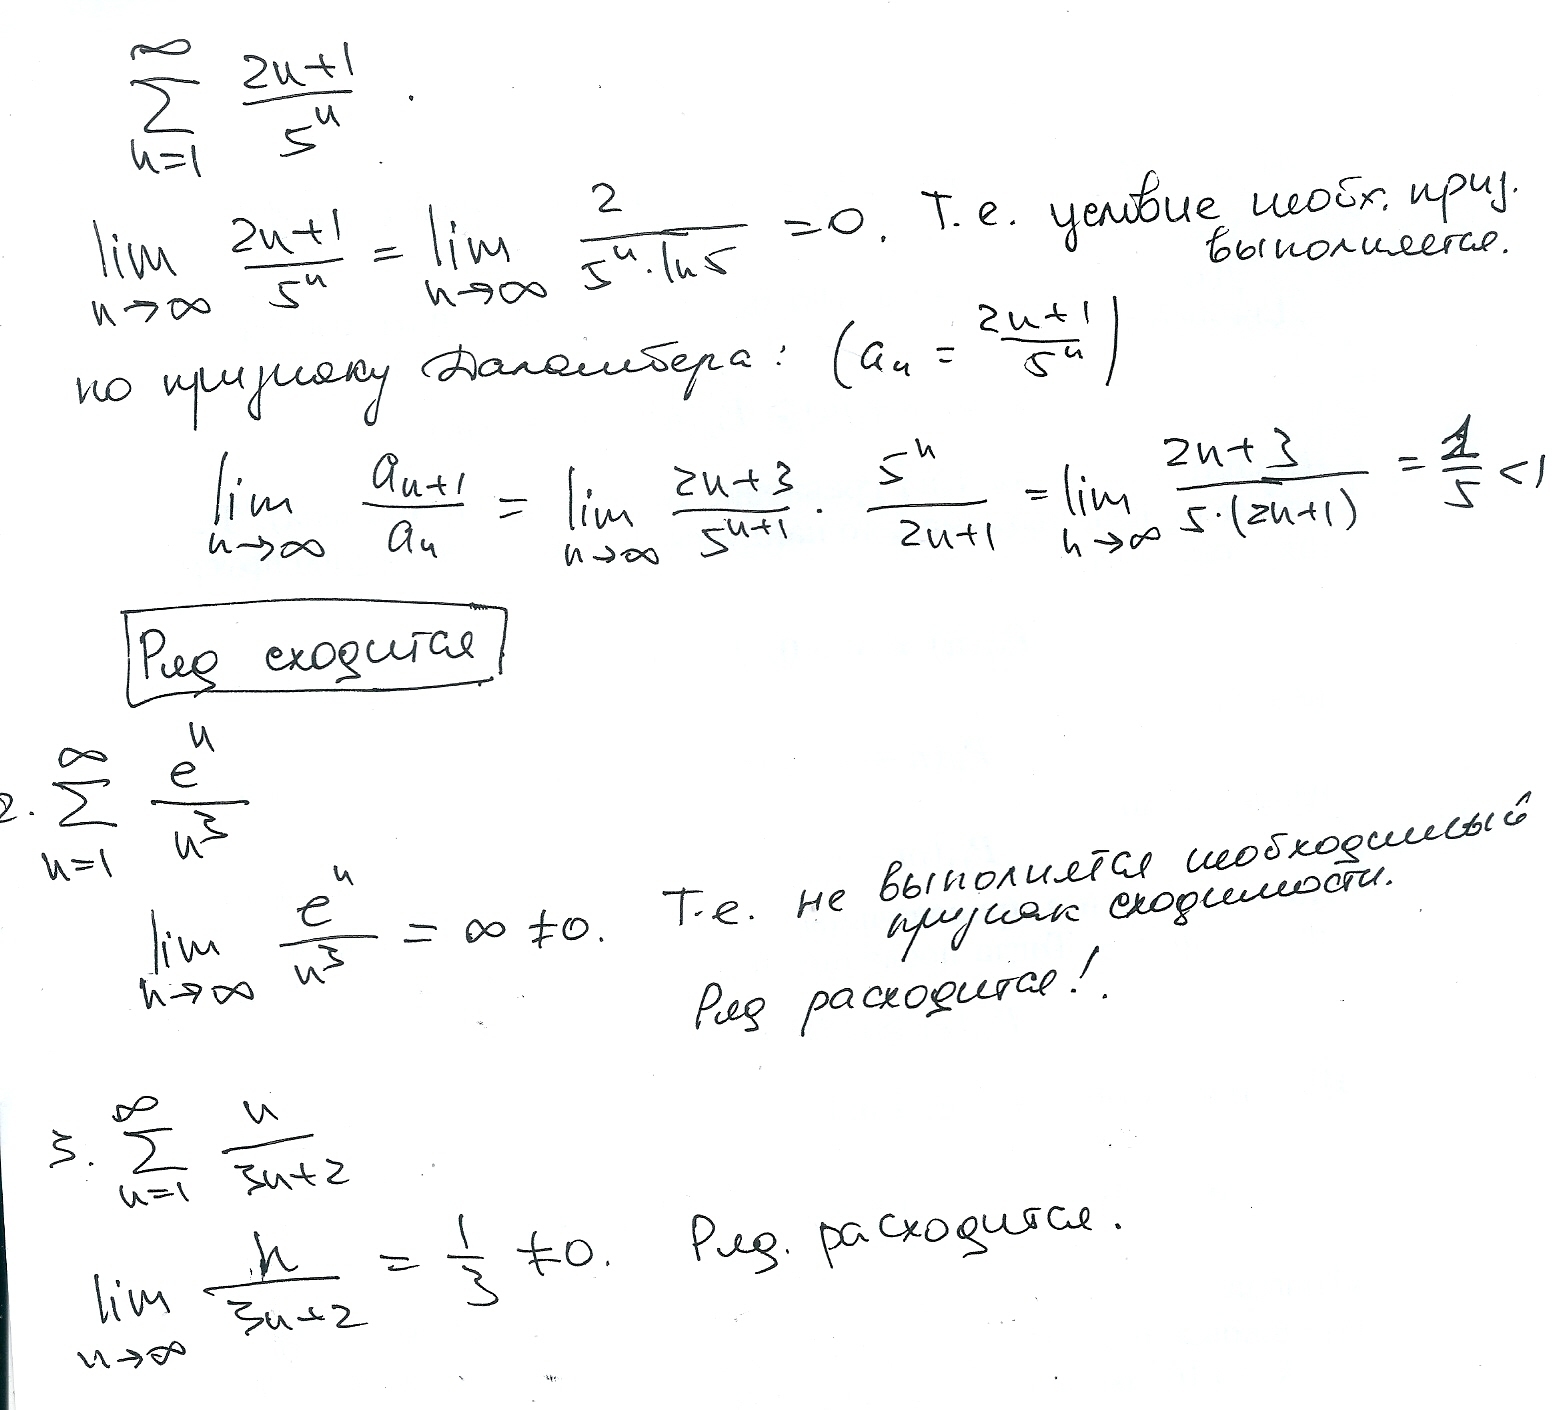 ∞
∑ (2n+1)/5ⁿ.
n=1
lim n→∞ (2n+1)/5ⁿ = lim n→∞ 2/(5ⁿ·ln5) = 0. Т.е. условие необх. призн. выполняется.
по признаку Даламбера: (aₙ = (2n+1)/5ⁿ)
lim n→∞ aₙ₊₁/aₙ = lim n→∞ (2n+3)/5ⁿ⁺¹ · 5ⁿ/(2n+1) = lim n→∞ (2n+3)/(5·(2n+1)) = 1/5 < 1
Ряд сходится
2. ∑ n=1 ∞ eⁿ/n³
lim n→∞ eⁿ/n³ = ∞ ≠ 0. Т.е. не выполнятся необходимый
признак сходимости.
Ряд расходится!.
3. ∑ n=1 ∞ n/(3n+2)
lim n→∞ n/(3n+2) = 1/3 ≠ 0. Ряд. расходится.